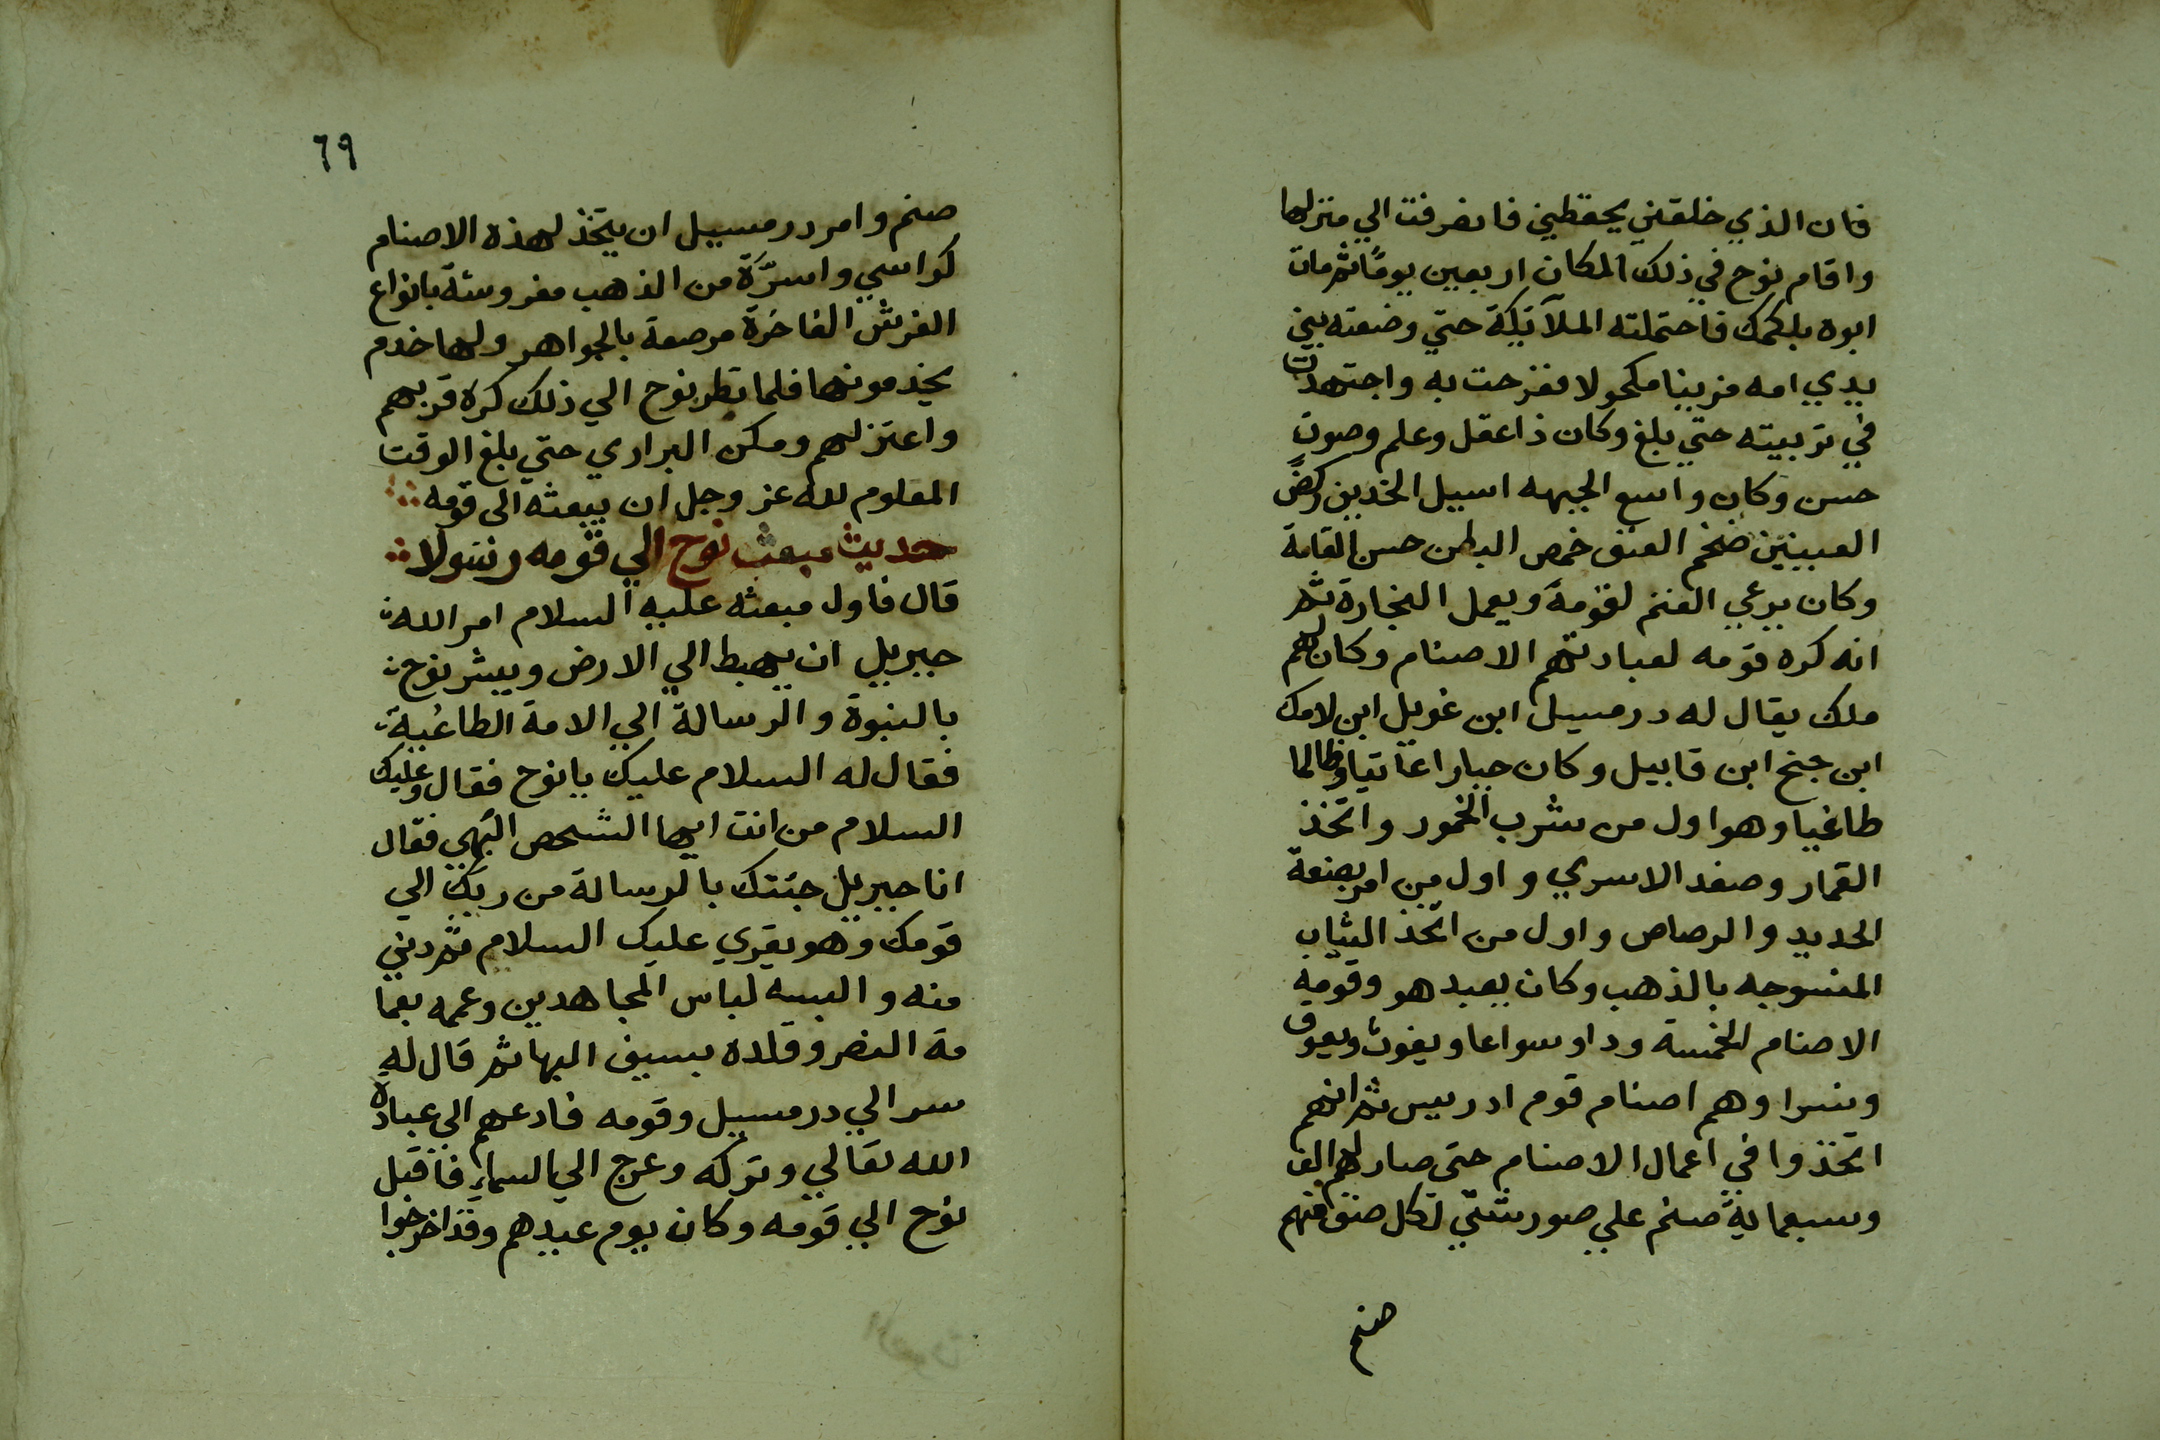 فان الذي خلقني يحفظني فانصرفت الي منزلها
واقام نوح في ذلك المكان اربعين يومًا ثم مات
ابوه بلكمك فاحتملته الملآئكة حتي وضعته بين
يدي امه مزينا مكحولا ففرحت به واجتهدت
في تربيته حتي بلغ وكان ذا عقل وعلم وصوت
حسن وكان واسع الجبهه اسيل الخدين
العينين ضخم العنق خمص البطن حسن القامة
وكان يرعي الغنم لقومه ويعمل النجارة ثم
انه كره قومه لعبادتهم الاصنام وكان لهم
ملك يقال له درمسيل ابن غويل ابن لامك
ابن جنح ابن قابيل وكان جبارا عاتيا وظالما
طاغيا وهو اول من شرب الخمور واتخذ
القمار وصفد الاسري واول من امر بصنعة
الحديد والرصاص واول من اتخذ الثياب
المنسوجه بالذهب وكان يعبد هو وقومه
الاصنام الخمسة ودا وسواعا ويغوث ويعوق
ونسرا وهم اصنام قوم ادريس ثم انهم
اتخذوا في اعمال الاصنام حتي صار لهم الف
وسبعماية صنم علي صور شتي لكل صنف منهم
صنم
٦٩
صنم وامر درمسيل ان يتخذ لهذه الاصنام
كراسي واسرّة من الذهب مفروشة بانواع
الفرش الفاخرة مرصعة بالجواهر ولها خدم
يخدمونها فلما نظر نوح الي ذلك كره قربهم
واعتزلهم وسكن البراري حتي بلغ الوقت
المعلوم لله عز وجل ان يبعثه الي قومه
حديث مبعث نوح الي قومه رسولا
قال فاول مبعثه عليه السلام امر الله
جبريل ان يهبط الي الارض ويبشر نوح
بالنبوة والرسالة الي الامة الطاغية
فقال له السلام عليك يا نوح فقال وعليك
السلام من انت ايها الشخص البهي فقال
انا جبريل جئتك بالرسالة من ربك الي
قومك وهو يقري عليك السلام ثم دني
منه والبسه لباس المجاهدين وعممه بعما
مة النصر وقلده بسيف البها ثم قال له
سر الي درمسيل وقومه فادعهم الي عبادة
الله تعالي وتركه وعرج الي السماء فاقبل
نوح الي قومه وكان يوم عيدهم وقد اخرجوا